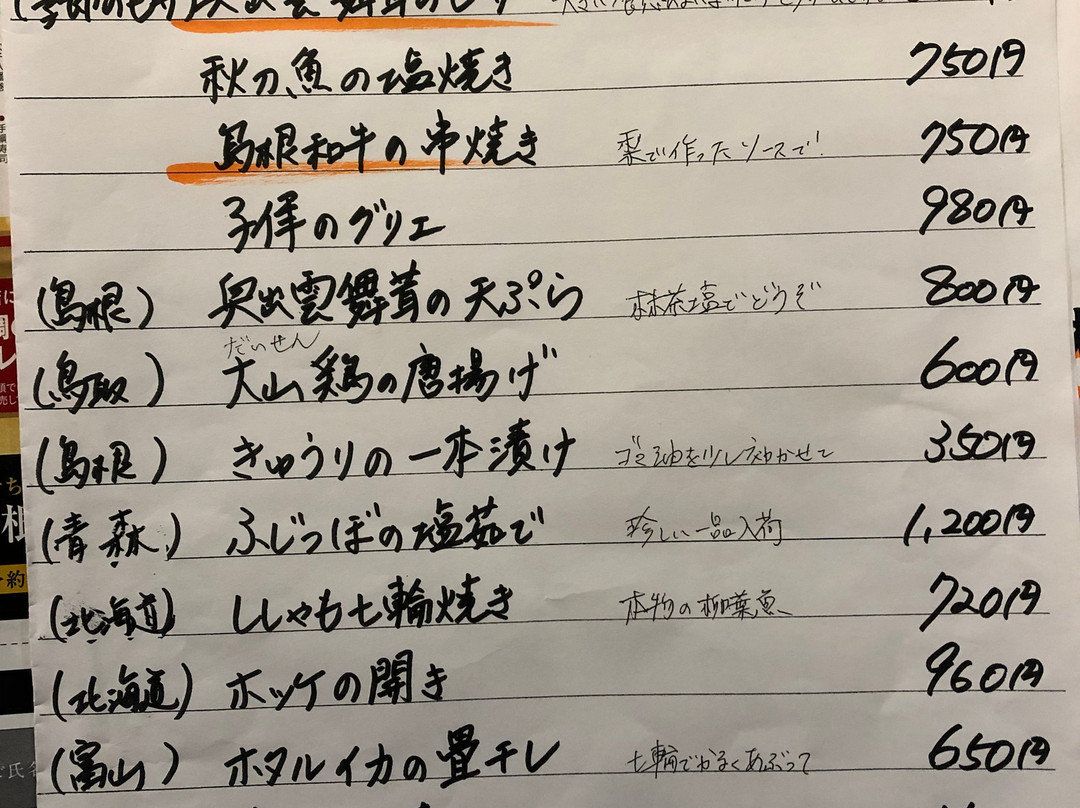 秋刀魚の塩焼き 750円
島根和牛の串焼き 梨で作ったソースで! 750円
子羊のグリエ 980円
(島根) 奥出雲舞茸の天ぷら 抹茶塩でどうぞ 800円
だいせん
(鳥取) 大山鶏の唐揚げ 600円
(島根) きゅうりの一本漬け ゴマ油を少し効かせて 350円
(青森) ふじつぼの塩茹で 珍しい一品入荷 1,200円
(北海道) ししゃも七輪焼き 本物の柳葉魚 720円
(北海道) ホッケの開き 960円
(富山) ホタルイカの畳干し 七輪でかるくあぶって 650円